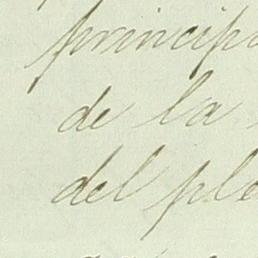 principi
de la
del ple